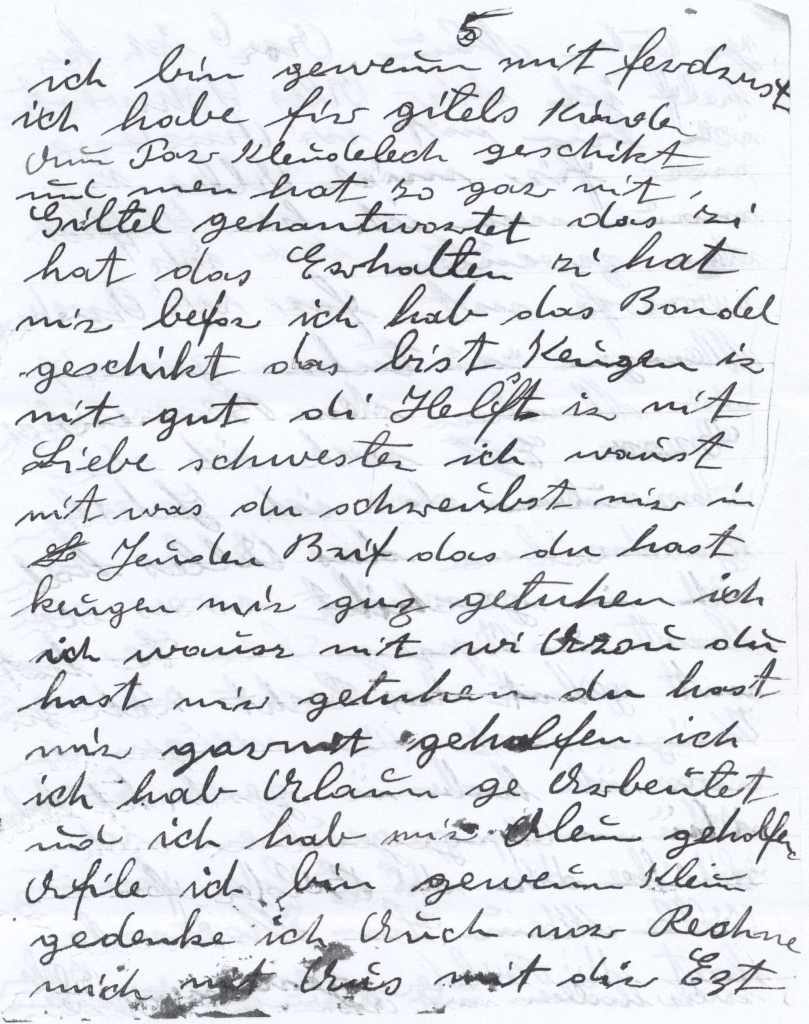 5
ich bin geweün mit ferdrust
ich habe fir gitels Kinder
Aün Par Kleüdelech geschikt
und men hat zo gar nit
Giltel gehantwortet das zi
hat das Erhalten zi hat
mir befor ich hab das Bondel
geschikt das bist Keügen iz
nit gut di Helift iz nit
Liebe schwester ich waüst
nit was du schreübst mir in
Jeüden Brif das du hast
keügen mir guz getuhen ich
ich waüsz nit wi Azoü du
hast mir getuhen du hast
mir garnit geholfen ich
ich hab Alaün ge Arbeütet
und ich hab mir Aleün geholfen
Afile ich bin geweün Kleün
gedenke ich Aüch nor Rechne
mich nit Aüs mit dir Ezt